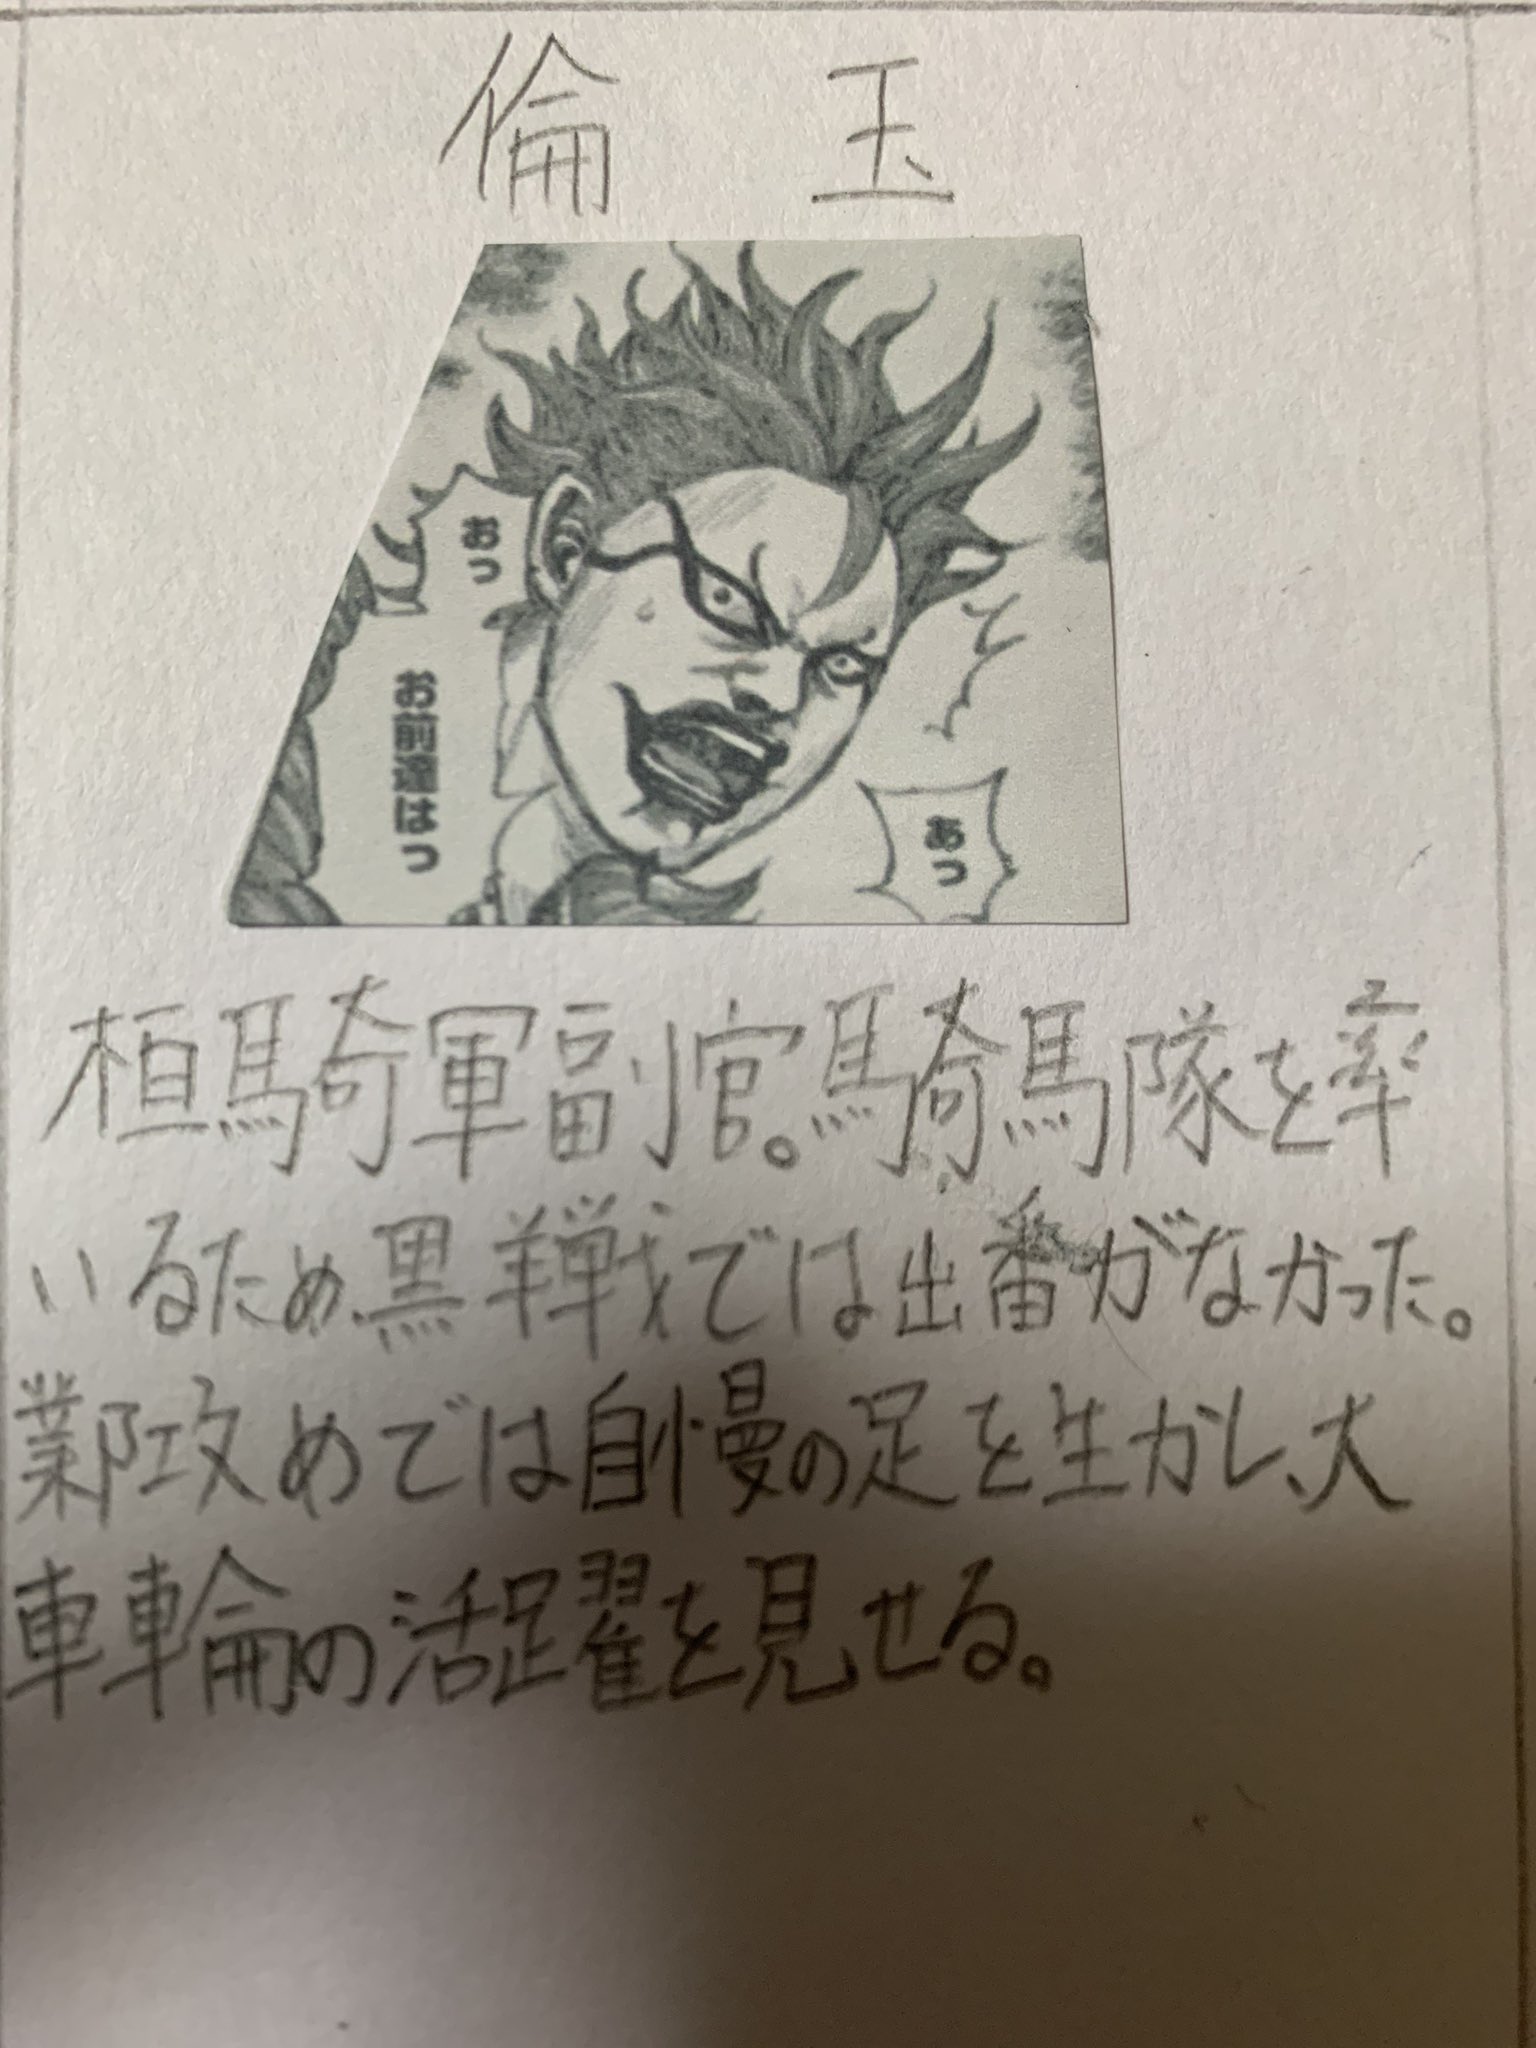 倫 玉
おっ
お前達はっ
あっ
桓騎軍副官。騎馬隊を率
いるため、黒羊戦では出番がなかった。
鄴攻めでは自慢の足を生かし、大
車輪の活躍を見せる。